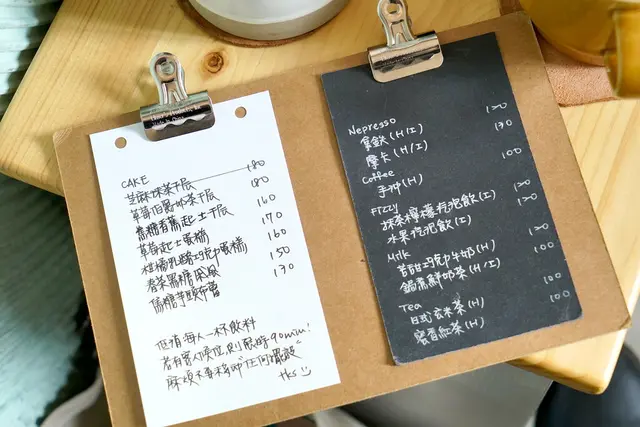 CAKE
芝麻抹茶千層 180
草莓伯爵奶茶千層 180
焦糖香蕉起士千層 160
草莓起士蛋糕 170
蛋糕 160
春茶黑糖戚風 150
焦糖芋頭布蕾 130
低消每人一杯飲料
若有客人候位,則限時90min!
麻煩不要移動"任何擺設"
tks
Nepresso
拿鐵(H/I) 120
摩卡(H/I) 130
Coffee
手沖(H) 100
Fizzy
抹茶檸檬氣泡飲(I) 120
水果氣泡飲(I) 120
Milk
苦甜巧克力牛奶(H) 120
鍋煮鮮奶茶(H/I) 100
Tea
日式玄米茶(H) 100
蜜香紅茶(H) 100